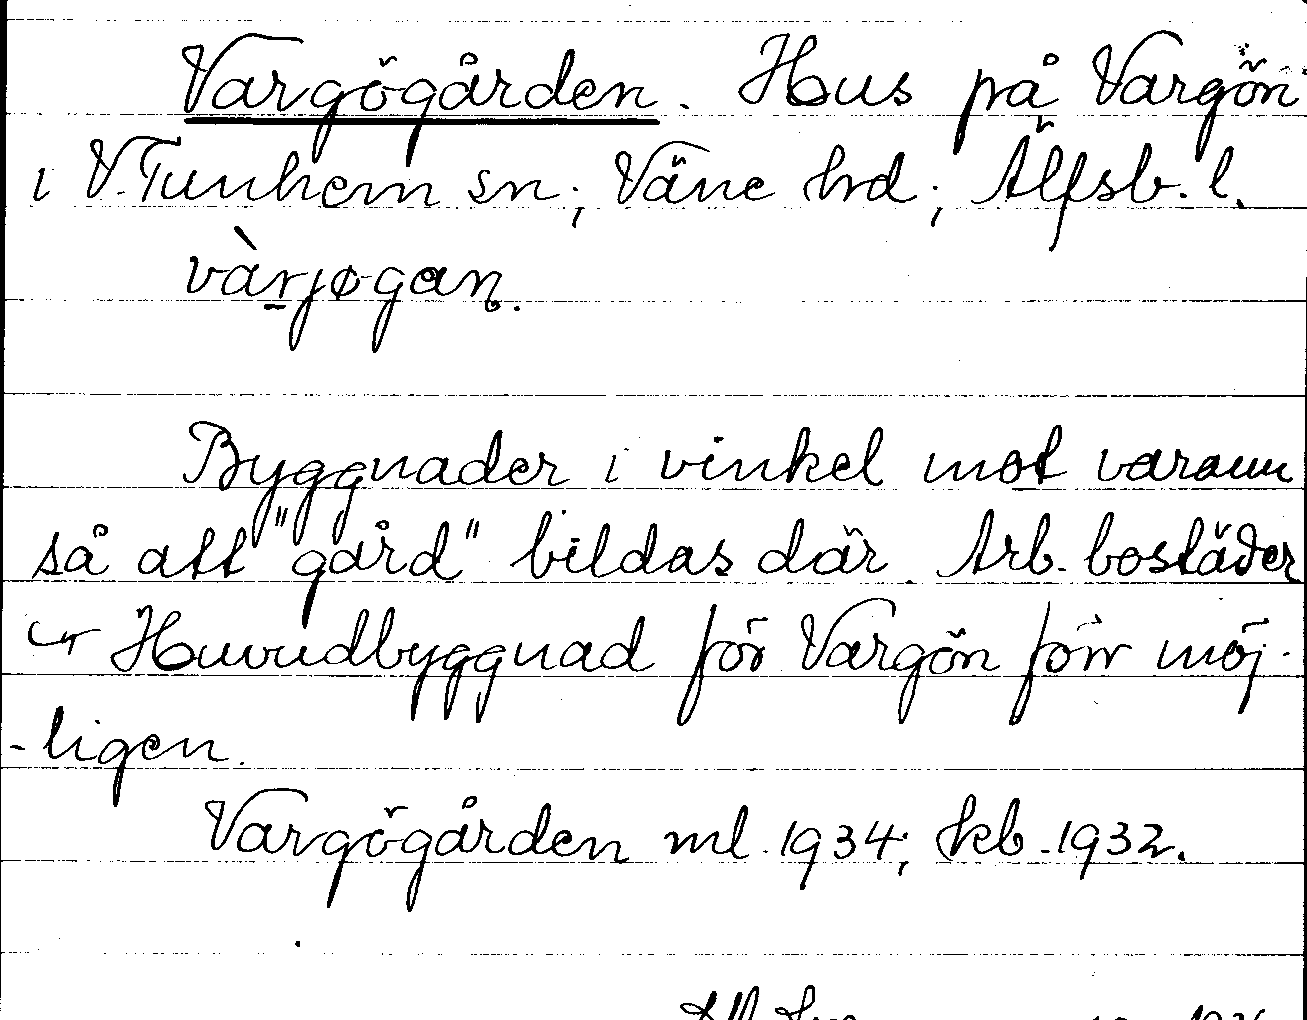 Vargögården. Hus på Vargön
i V. Tunhem sn; Väne hrd; Älfsb. l.
vàrjøgan.
Byggnader i vinkel mot varann
så att "gård" bildas där. Arb. bostäder
Huvudbyggnad för Vargön förr möj-
-ligen.
Vargögården ml. 1934; kb. 1932.